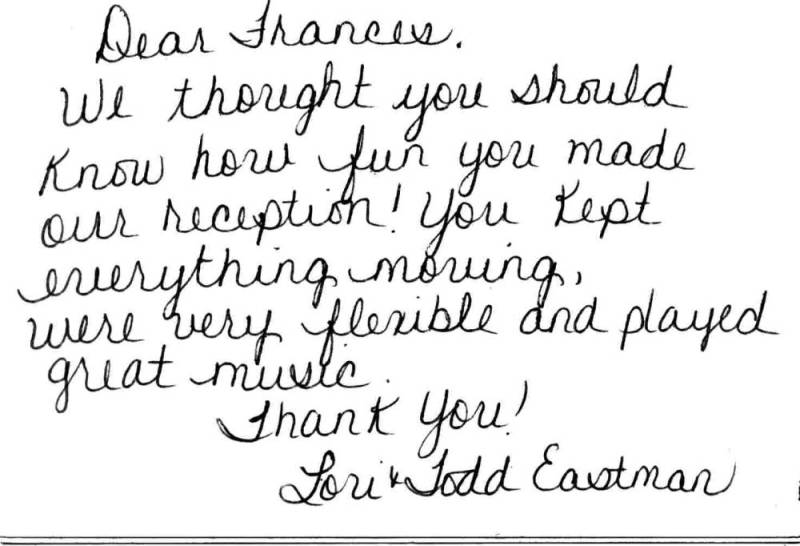 Dear Frances.
We thought you should
know how fun you made
our reception! You kept
everything moving,
were very flexible and played
great music.
Thank You!
Lori & Todd Eastman